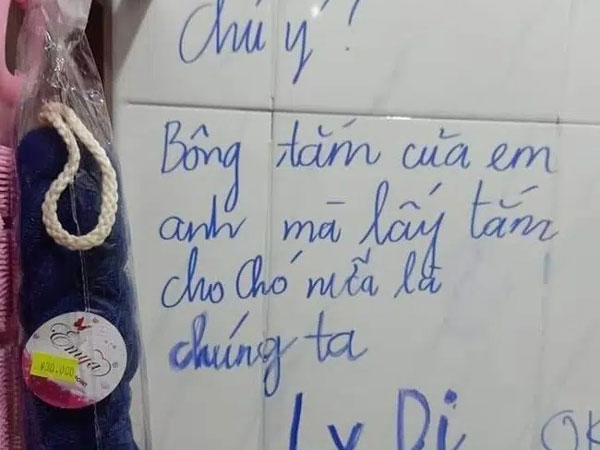 Chú ý!
Bông tắm của em
anh mà lấy tắm
cho chó nữa là
chúng ta
Ly Dị OK
Emija
¥30.000